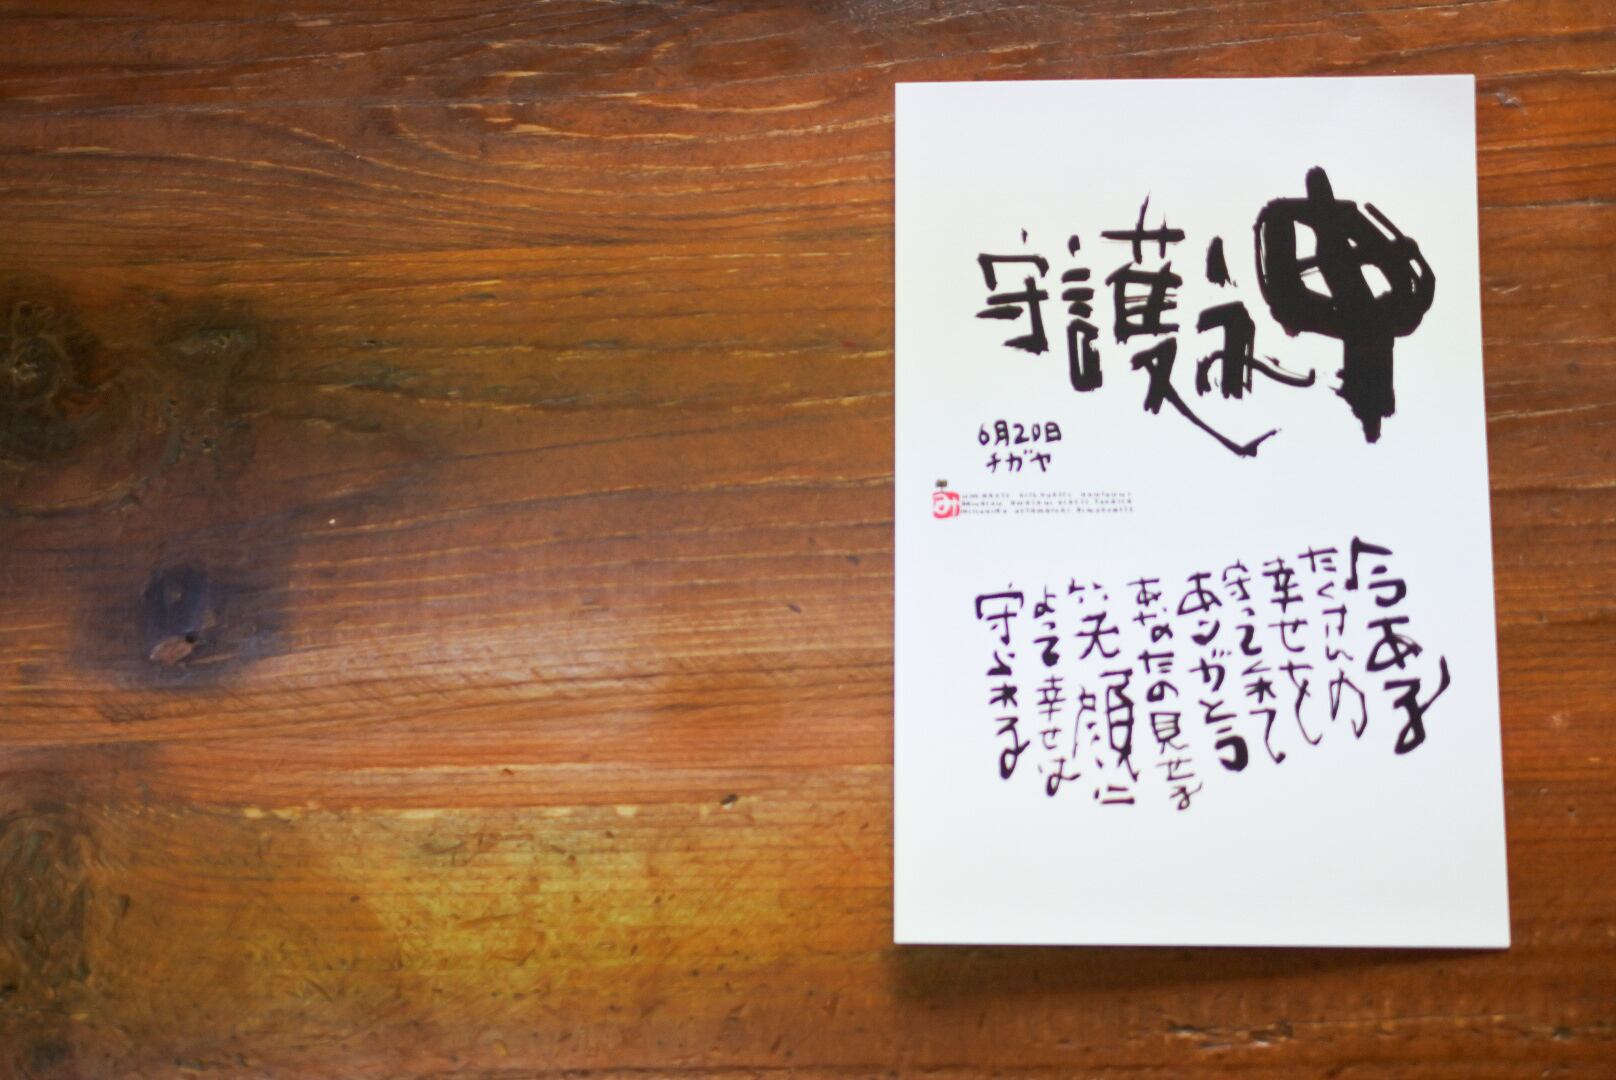 守護神
6月20日
チガヤ
今ある
たくさんの
幸せを
守ってくれて
あンガと言
あなたの見せる
笑顔に
よって幸せは
守られる